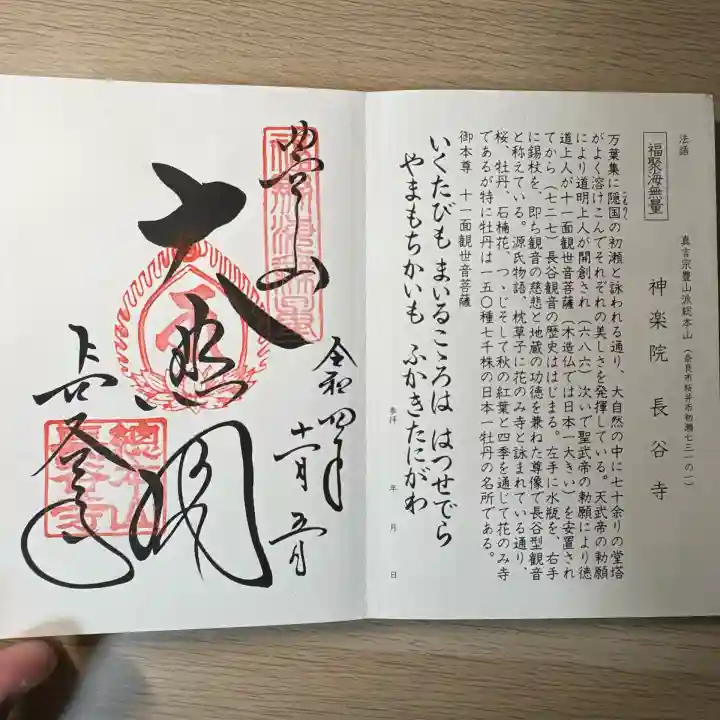 法語
福聚海無量
真言宗豊山派総本山 (奈良市桜井市初瀬七三一の一)
神楽院 長谷寺
万葉集に隠国の初瀬と詠われる通り、大自然の中に七十余りの堂塔
こもりく
がよく溶けこんでそれぞれの美しさを発揮している。天武帝の勅願
により道明上人が開創され(六八六)次いで聖武帝の勅願により徳
道上人が十一面観世音菩薩(木造仏では日本一大きい)を安置され
てから(七二七)長谷観音の歴史ははじまる。左手に水瓶を、右手
に錫杖を、即ち観音の慈悲と地蔵の功徳を兼ねた尊像で長谷型観音
と称えている。源氏物語、枕草子に花のみ寺と詠まれている通り、
桜、牡丹、石楠花、つゝじそして秋の紅葉と四季を通じて花のみ寺
であるが特に牡丹は一五〇種七千株の日本一牡丹の名所である。
御本尊 十一面観世音菩薩
いくたびも まいるこゝろは はつせでら
やまもちかいも ふかきたにがわ
参拝 年 月 日
令和四年十一月五日
豊山
大悲閣
総本山
長谷寺